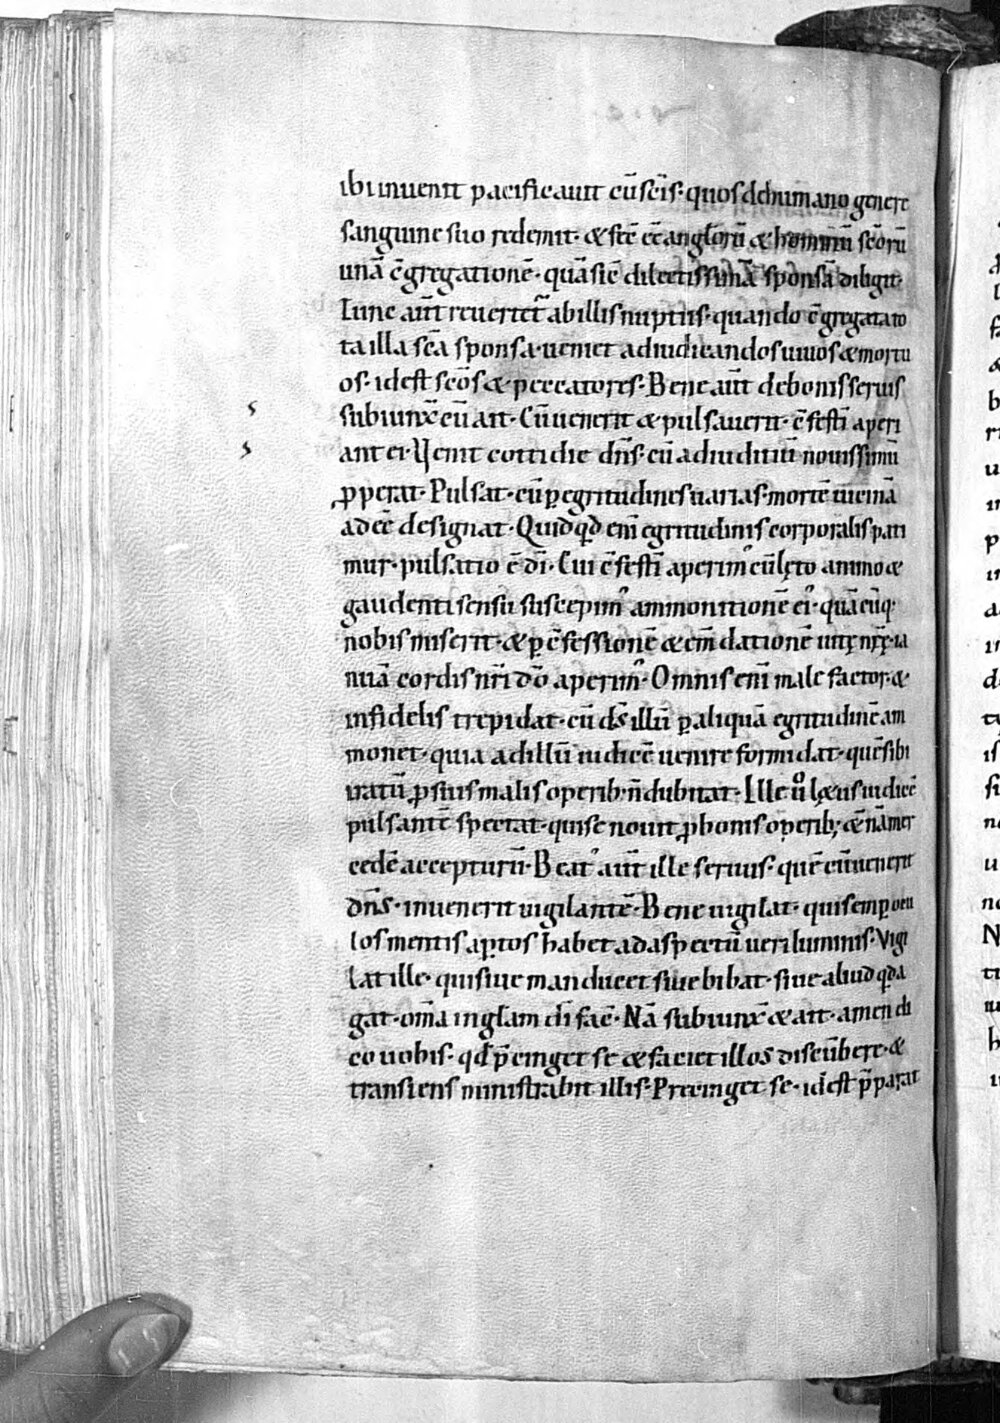 ibi inuenit pacificauit cū sc̄is· quos de humano genere
sanguine suo redemit· & fec̄ eē anglorū & hominū sc̄orū
unā c̄gregationē· quā sic̄ dilectissimā sponsā diligit·
Tunc aūt reuertet̄ ab illis nuptiis· quando c̄gregata to
ta illa sc̄a sponsa· ueniet ad iudicandos uiuos & mortu
os· id est sc̄os & peccatores· Bene aūt de bonis seruis
subiunx̄ cū ait· Cū uenerit & pulsauerit· c̄festī aperi
ant ei· Venit cottidie dn̄s· cū ad iuditiū nouissimū
ꝓperat· Pulsat· cū ꝑ egritudines uarias· mortē uicinā
adeē designat· Quidqd̄ eni̅ egritudinis corporalis pati
mur· pulsatio ē dī· Cui c̄festī aperim᾽ cū lęto animo &
gaudenti sensu suscepim᾽ ammonitionē ei᾽· quācūq·
nobis miserit· & ꝑ c̄fessionē & em̄dationē uitę nr̄ę· ia
nuā cordis nr̄i dō aperim᾽· Omnis eni̅ male factor· &
infidelis trepidat· cū ds̄ illū ꝑ aliquā egritudinē am
monet· quia ad illū iudicē uenire formidat· quē sibi
iratū ꝓ suis malis operib· n̄ dubitat· Ille uͦ lętus iudicē
pulsantē spectat· qui se nouit ꝓ bonis operib; ęt̄nā mer
cedē accepturū· Beat᾽ aūt ille seruus· quē cū uenerit
dn̄s· inuenerit uigilantē· Bene uigilat· qui semꝑ ocu
los mentis aptos habet ad aspectū ueri luminis· Vigi
lat ille· qui siue manducet siue bibat· siue aliud qd̄ a
gat· om̄a in glam̄ dī fac̄· Nā subiunx̄ & ait· amen di
co uobis· qd̄ p̄cinget se & faciet illos discūbere· &
transiens ministrabit illis· Precinget se· id est p̄parat